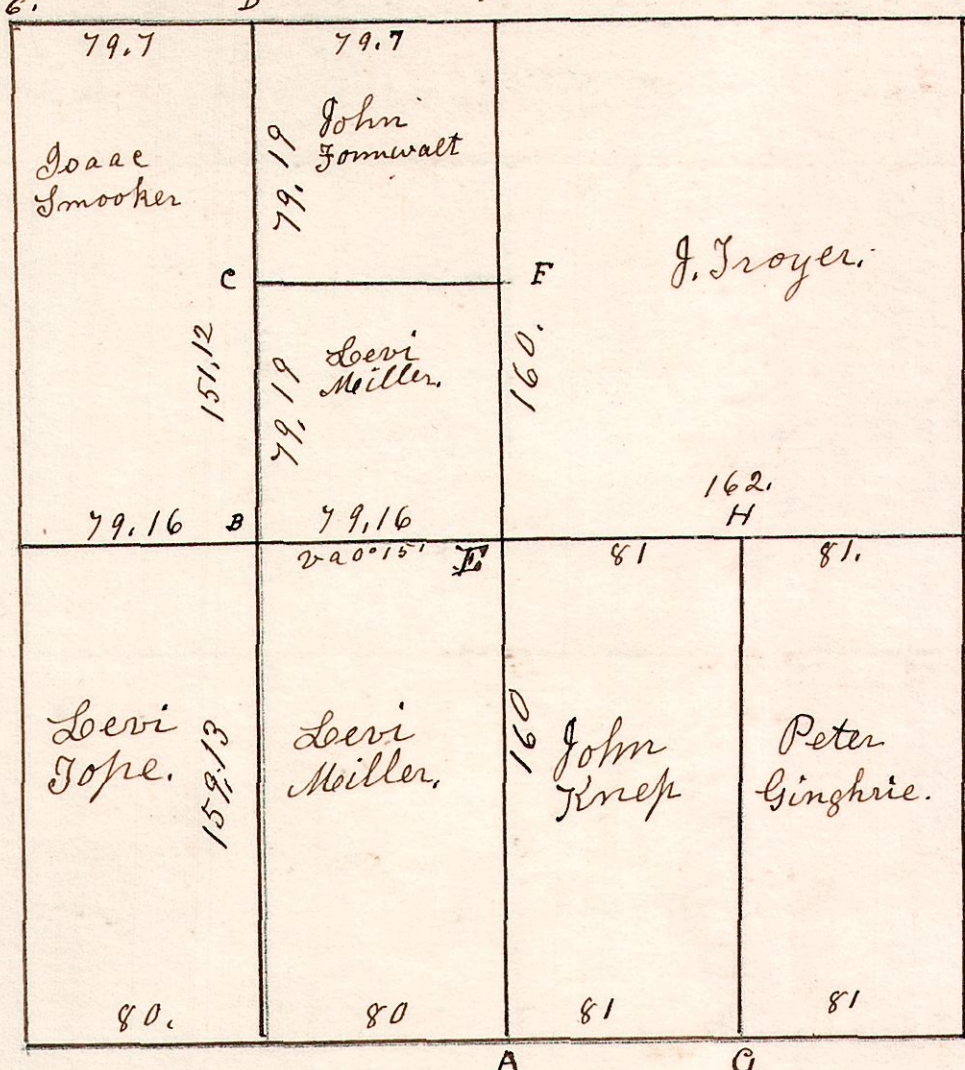 6.
D
79.7
79.7
Isaac
Smooker
79.19
John
Fonnwalt
J. Troyer.
C
F
151,12
79,19
Levi
Miller.
160.
162.
H
79.16
B
79,16
va 0° 15'
E
81
81.
Levi
Tope.
159.13
Levi
Miller.
160
John
Knep
Peter
Ginghrie.
80.
80
81
81
A
G